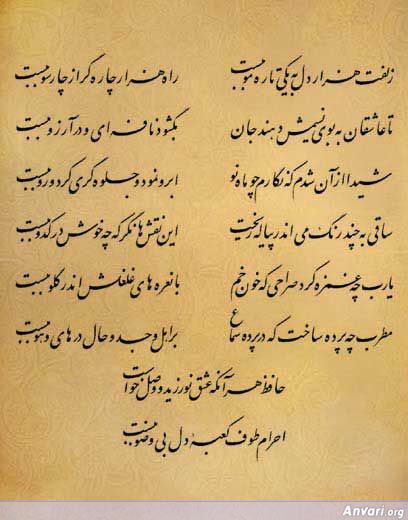 زلفت هزار دل به یکی تاره مو ببست راه هزار چاره گر از چار سو ببست
تا عاشقان به بوی نسیمش دهند جان بگشود نافه‌ای و در آرزو ببست
شیدا از آن شدم که نگارم چو ماه نو ابرو نمود و جلوه گری کرد و رو ببست
ساقی به چند رنگ می اندر پیاله ریخت این نقش‌ها نگر که چه خوش در کدو ببست
یارب چه غمزه کرد صراحی که خون خم با نعره‌های غلغلش اندر گلو ببست
مطرب چه پرده ساخت که در پرده سماع بر اهل وجد و حال در های و هو ببست
حافظ هر آنکه عشق نورزید و وصل خواست
احرام طوف کعبه دل بی وضو ببست
Anvari.org